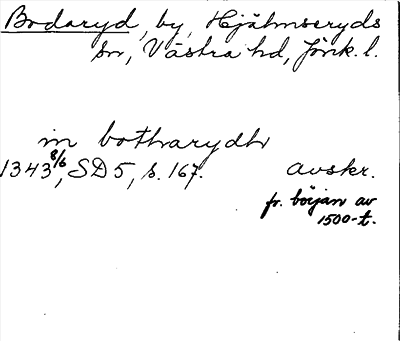 Bodaryd, by, Hjälmseryds
sn, Västra hd, Jönk. l.
in botharydh
1343 8/6, SD 5, s. 167. avskr.
fr. början av
1500-t.